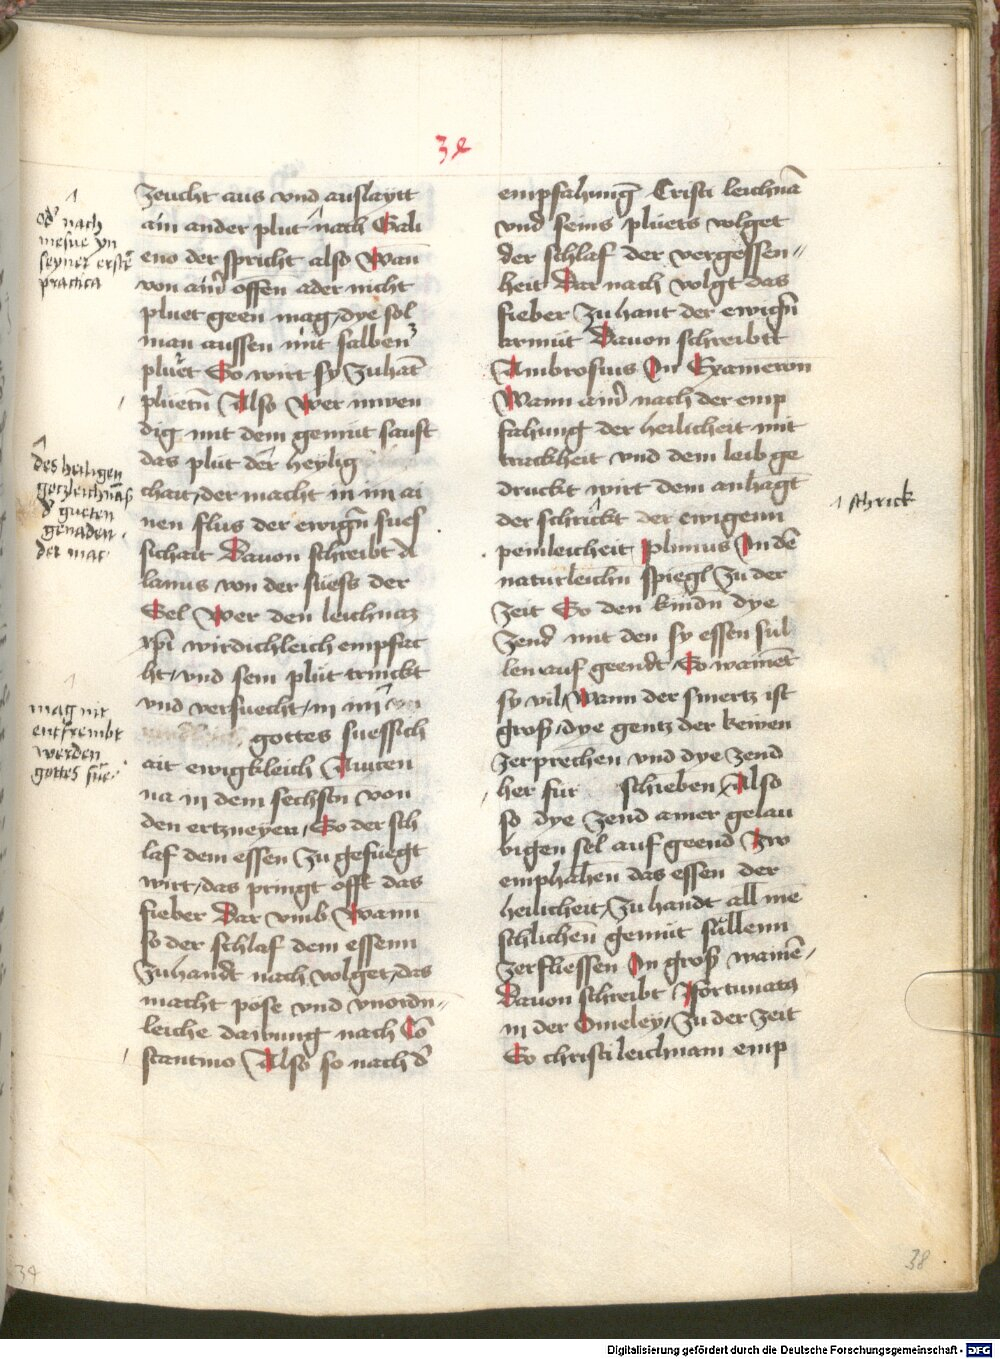 34
zeucht aus vnd auslaytt
ain ander plut nach Gali
eno der spricht also Wan
von aim offen ader nicht
pluet geen mag / dye sol
man aussen mit salben
pluet So wirt sy zuhant
pluetn Also Wer inwen
dig mit dem gemut saufft
das plut der heylig
chait / der macht in im ai
nen flus der ewign sues
sichait Dauon schreibt
lanus von der suess der
Sel Wer den leichnaz
xpi wirdichleich empfac
ht / vnd sein plut trinckt
vnd versuecht / in im
gottes suessich
ait ewigkleich Auicen
na in dem sechstn von
den ertzneyen / So der sch
laf dem essen zu gefuegt
wirt / das pringt offt das
fieber Dar vmb Wann
so der schlaf dem essenn
zuhandt nach volget / das
macht pose vnd vnordn=
leiche dawung nach Co
stantino Also so nach d'
od' nach
mesue yn
seyner erste
practica
des heiligen
gotzleichnas
d' gueten
genaden
der mac
mag nit
entfrembt
werden
gottes sue
empfahung Cristi leichna
vnd seins pluets volget
der schlaf der vergessen=
heit Dar nach volgt das
fieber zu hant der ewign
armut Dauon schreibt
Ambrosius In Exameron
Wann aim nach der emp
fahung der heilicheit mit
trackheit vnd dem leib ge
druckt wirt dem anhagt
der schrickt der ewigenn
peinleicheit Plinius In de
naturleichn spiegl zu der
zeit So den kindn dye
zend mit den sy essen sul
len auf geendt So wainet
sy vil / Wann der smertz ist
gros / dye gentz der kewen
zerprechen vnd dye zend
her fur schieben Also
so dye zend ainer gelau
bigen sel auf geend Zw
emphahen das essen der
heilicheit / zu handt all me
schlichen gemut sullenn
zerfliessen In gros waine
Dauon schreibt Fortunatus
in der Omeley / zu der zeit
So christi leichnam emp
schrick
34
38
Digitalisierung gefördert durch die Deutsche Forschungsgemeinschaft - DFG